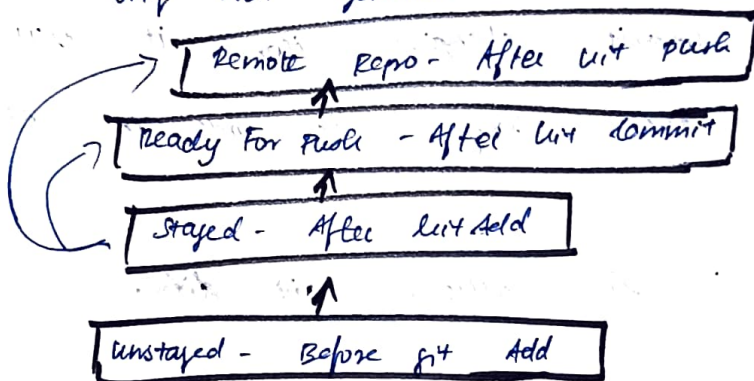 Remote Repo - After Git push
Ready For Push - After Git Commit
Staged - After Git Add
Unstaged - Before git Add